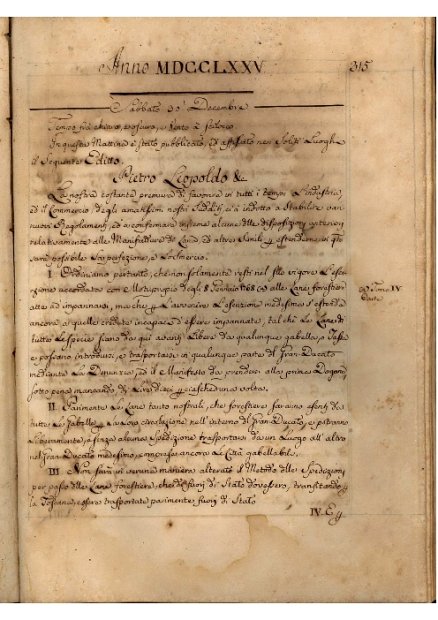 Anno MDCCLXXV
315
Sabbato 30 Decembre
Tempo chiaro, oscuro, e Vento a
In questa Mattina è stato pubblicato, ed affissato nei Soliti Luoghi
il Seguente Editto.
Pietro Leopoldo &c
La nostra costante premura di favorire in tutti i tempi l'industria,
ed il Commercio degli amatissimi nostri Sudditi ci à indotto a Stabilire vari
nuovi Regolamenti, ed a confermare insieme alcune delle disposizioni anteriori
relativamente alle Manifatture di Lana, ed altre Simili
sare possibile La perfezione, e Lo Smercio.
I. Ordiniamo pertanto, che non solamente resti nel suo vigore L'esen-
zione accordata con Motuproprio degli 8 Gennaio 1768 alle Lane forestiere
Tomo IV
Carte
atte ad impannarsi, mà che per L'avvenire L'esenzione medesima s'estenda
ancora a quelle credute incapaci d'essere impannate, tal che Le Lane di
tutte Le specie siano da qui avanti Libere da qualunque gabella, o Tassa
e possano introdursi, e trasportarsi in qualunque parte del Gran Ducato
mediante La Denunzia, ed il Manifesto da prendersi alle prime Dogane
sotto pena mancando di Lire dieci per ciascheduna volta.
II. Parimente Le Lane tanto nostrali, che forestiere saranno esenti da
tutte Le Gabelle per La loro circolazione nell'interno del Gran Ducato, e potranno
Liberamente, e senza alcuna Spedizione trasportarsi da un Luogo all'altro
nel Gran Ducato medesimo, comprese ancora Le Città gabellabili.
III. Non sarà in veruna maniera alterato il Metodo delle Spedizioni
per passo delle Lane forestiere, che di fuori di Stato dovessero, transitando per
la Toscana, essere trasportate parimente fuori di Stato
IV. E